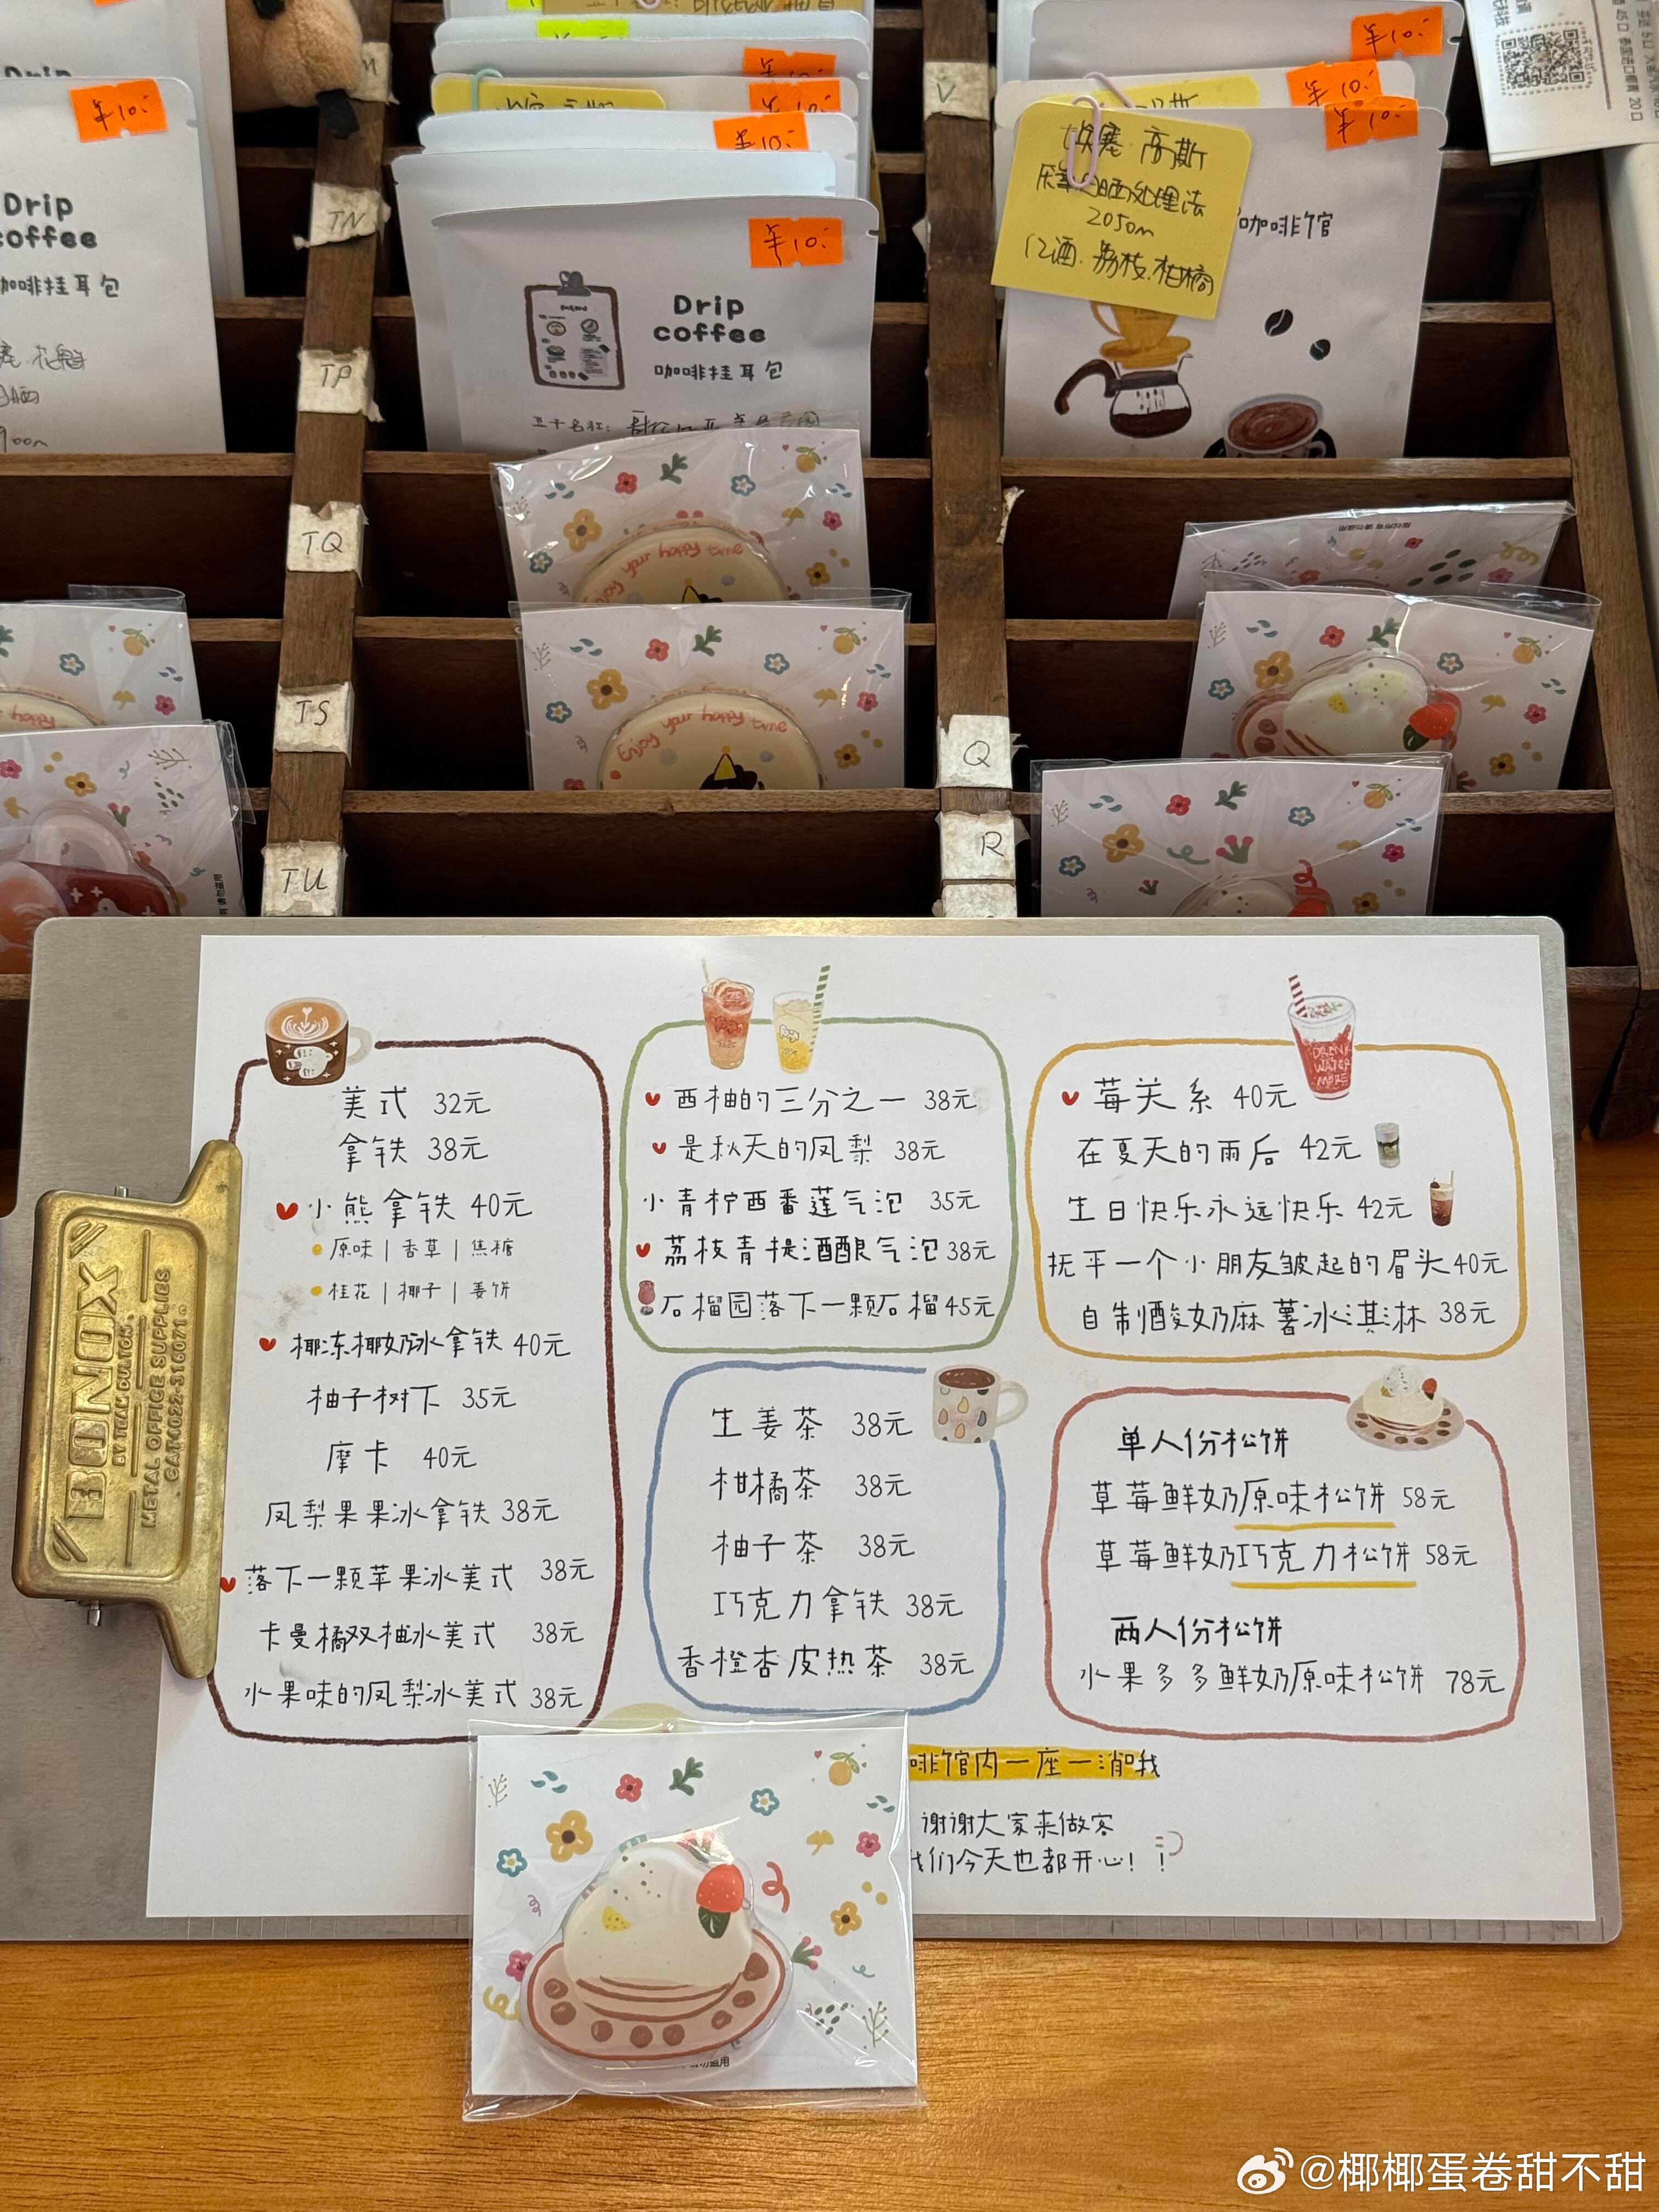 ¥10.
Drip
coffee
咖啡挂耳包
¥10.
¥10.
¥10.
¥10.
Drip
coffee
咖啡挂耳包
¥10.
¥10.
¥10.
埃塞 高斯
厌氧日晒处理法
2050m
亿酒.荔枝.柑橘
咖啡馆
V
TN
TP
TQ
TS
TU
Q
R
Enjoy your happy time
Enjoy your happy time
BONOX
BY TEAM DULTON.
METAL OFFICE SUPPLIES
美式 32元
拿铁 38元
小熊拿铁 40元
原味 | 香草 | 焦糖
桂花 | 椰子 | 姜饼
椰冻椰奶冰拿铁 40元
柚子树下 35元
摩卡 40元
凤梨果果冰拿铁 38元
落下一颗苹果冰美式 38元
卡曼橘双柚冰美式 38元
水果味的凤梨冰美式 38元
西柚的三分之一 38元
是秋天的凤梨 38元
小青柠西番莲气泡 35元
荔枝青提酒酿气泡 38元
石榴园落下一颗石榴 45元
生姜茶 38元
柑橘茶 38元
柚子茶 38元
巧克力拿铁 38元
香橙杏皮热茶 38元
DRINK
WATER
MORE
莓关系 40元
在夏天的雨后 42元
生日快乐永远快乐 42元
抚平一个小朋友皱起的眉头 40元
自制酸奶麻薯冰淇淋 38元
单人份松饼
草莓鲜奶原味松饼 58元
草莓鲜奶巧克力松饼 58元
两人份松饼
水果多多鲜奶原味松饼 78元
啡馆内一座一消哦
谢谢大家来做客
我们今天也都开心！！
@椰椰蛋卷甜不甜